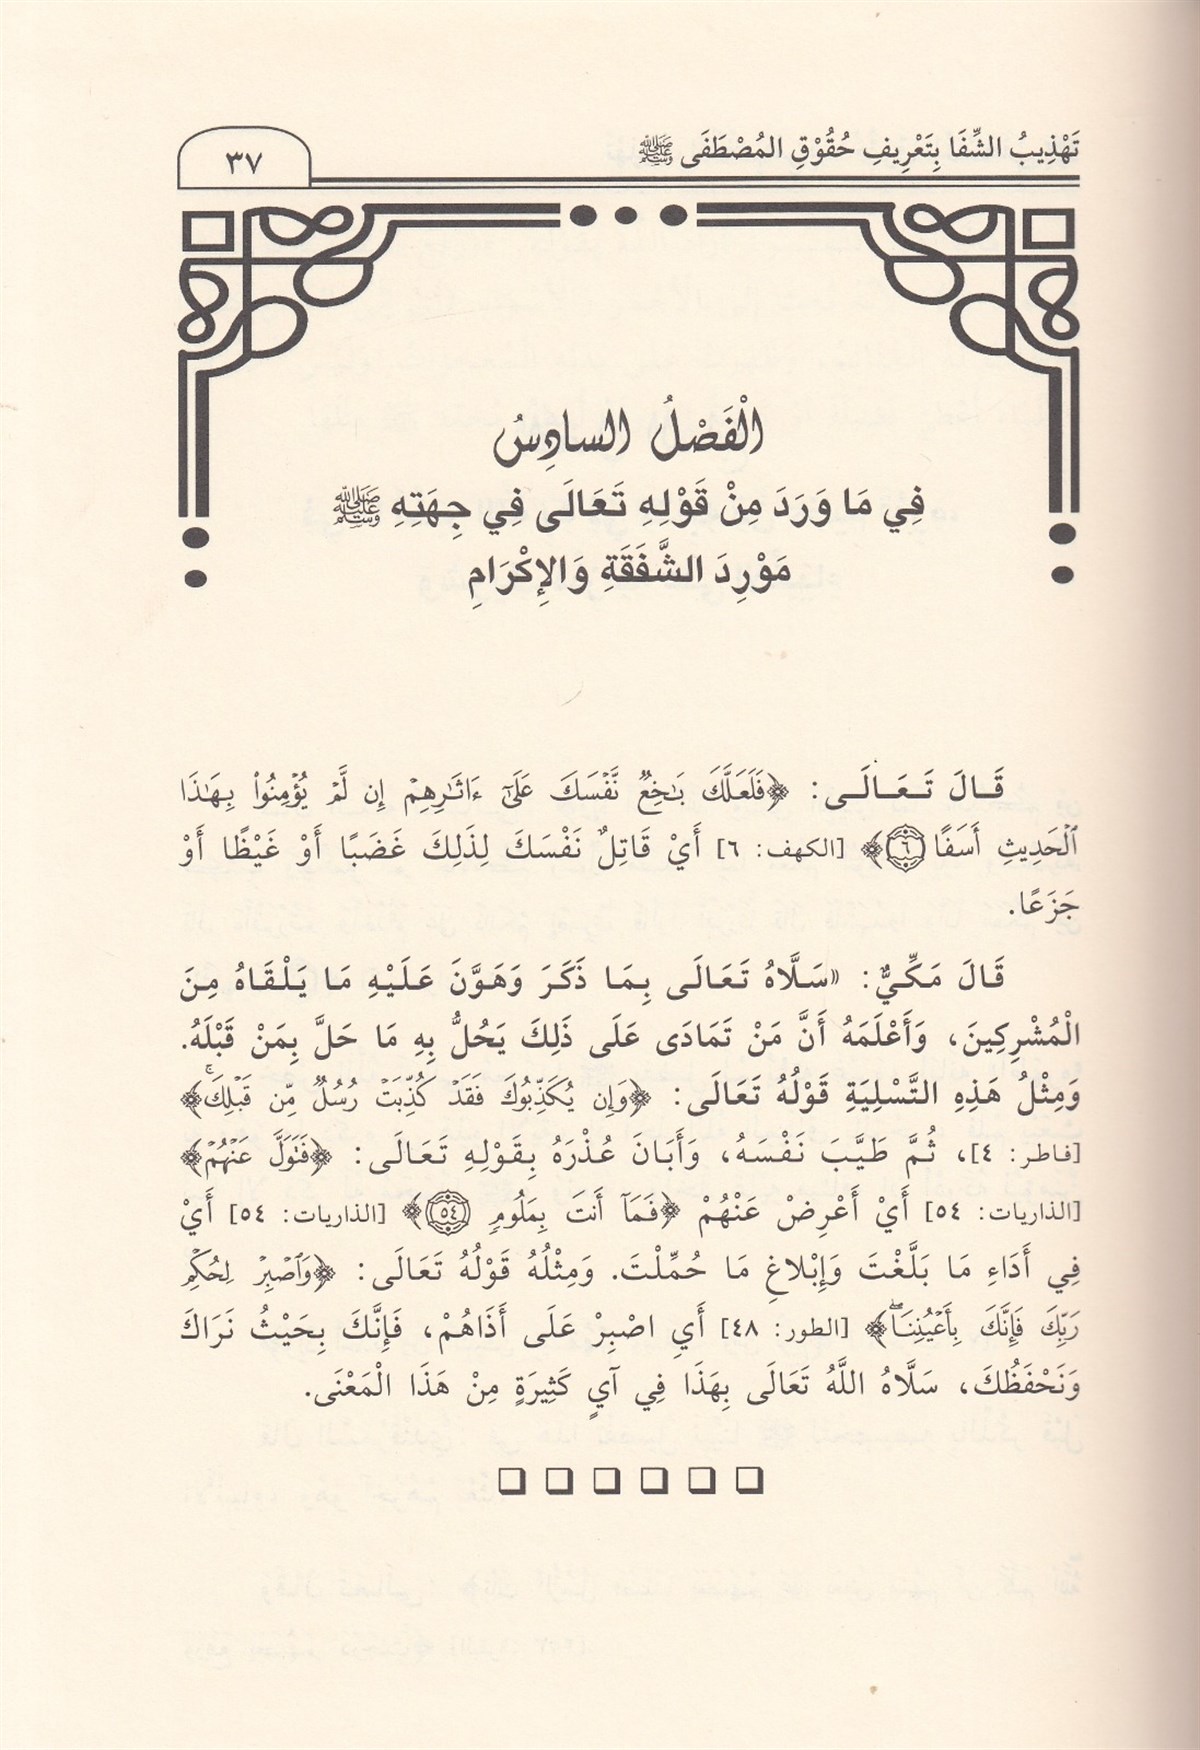 تَهْذِيبُ الشِّفَا بِتَعْرِيفِ حُقُوْقِ المُصْطَفَى ﷺ
٣٧
الْفَصْلُ السادِسُ
فِي مَا وَرَدَ مِنْ قَوْلِهِ تَعَالَى فِي جِهَتِهِ ﷺ
مَوْرِدَ الشَّفَقَةِ وَالإِكْرَامِ
قَالَ تَعَالَى: ﴿فَلَعَلَّكَ بَٰخِعٌ نَّفْسَكَ عَلَىٰٓ ءَاثَٰرِهِمْ إِن لَّمْ يُؤْمِنُوا۟ بِهَٰذَا
ٱلْحَدِيثِ أَسَفًا ٦﴾ [الكهف: ٦] أَيْ قَاتِلٌ نَفْسَكَ لِذَلِكَ غَضَبًا أَوْ غَيْظًا أَوْ
جَزَعًا.
قَالَ مَكِّيٌّ: «سَلَّاهُ تَعَالَى بِمَا ذَكَرَ وَهَوَّنَ عَلَيْهِ مَا يَلْقَاهُ مِنَ
الْمُشْرِكِينَ، وَأَعْلَمَهُ أَنَّ مَنْ تَمَادَى عَلَى ذَلِكَ يَحُلُّ بِهِ مَا حَلَّ بِمَنْ قَبْلَهُ.
وَمِثْلُ هَذِهِ التَّسْلِيَةِ قَوْلُهُ تَعَالَى: ﴿وَإِن يُكَذِّبُوكَ فَقَدْ كُذِّبَتْ رُسُلٌ مِّن قَبْلِكَ ۚ﴾
[فاطر: ٤]، ثُمَّ طَيَّبَ نَفْسَهُ، وَأَبَانَ عُذْرَهُ بِقَوْلِهِ تَعَالَى: ﴿فَتَوَلَّ عَنْهُمْ﴾
[الذاريات: ٥٤] أَيْ أَعْرِضْ عَنْهُمْ ﴿فَمَآ أَنتَ بِمَلُومٍ ٥٤﴾ [الذاريات: ٥٤] أَيْ
فِي أَدَاءِ مَا بَلَّغْتَ وَإِبْلاغِ مَا حُمِّلْتَ. وَمِثْلُهُ قَوْلُهُ تَعَالَى: ﴿وَٱصْبِرْ لِحُكْمِ
رَبِّكَ فَإِنَّكَ بِأَعْيُنِنَا ۖ﴾ [الطور: ٤٨] أَيِ اصْبِرْ عَلَى أَذَاهُمْ، فَإِنَّكَ بِحَيْثُ نَرَاكَ
وَنَحْفَظُكَ، سَلَّاهُ اللَّهُ تَعَالَى بِهَذَا فِي آيٍ كَثِيرَةٍ مِنْ هَذَا الْمَعْنَى.